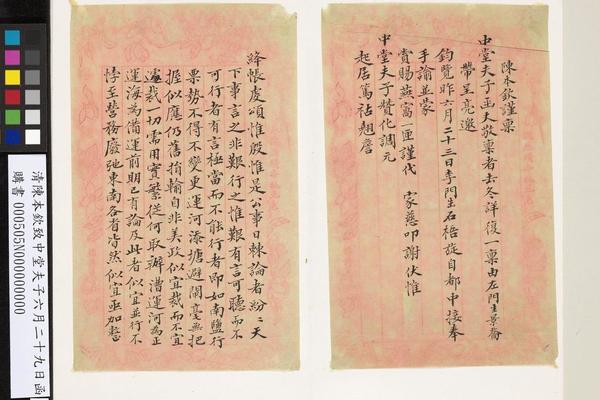 陳本欽謹稟
中堂夫子函丈敬稟者去冬詳復一稟由左門生景喬
帶呈亮邀
鈞覽昨六月二十三日李門生石梧旋自都中接奉
手諭並蒙
賞賜燕窩一匣謹代 家慈叩謝伏惟
中堂夫子贊化調元
起居篤祜翹詹
絳帳虔頌惟殷惟是公事日棘論者紛〻天
下事言之非艱行之惟艱有言可聽而不
可行者有言極當而不能行者即如南鹽行
票勢不得不變更運河添塘避閘毫無把
握似應仍舊捐輸自非美政似宜裁而不宜
遽裁一切需用實繁從何取辦漕運河為正
運海為備運前期已有論及此者似宜並行不
悖至營務廢弛東南各省皆然似宜亟加整
清陳本欽致中堂夫子六月二十九日函
購書 000505N000000000